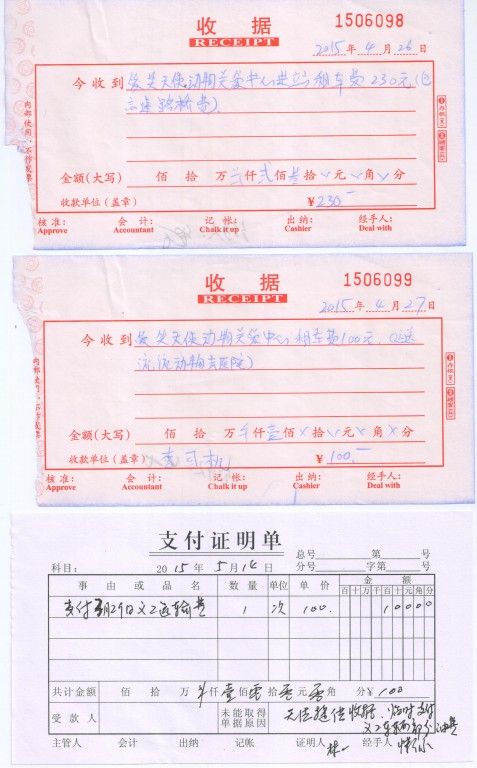 收据
RECEIPT
1506098
2015年4月26日
今收到 爱芙天使动物关爱中心进站租车费230元(包
高速路桥费).
金额(大写) 佰 拾 万 仟贰佰叁拾 元 角 分
收款单位(盖章) ¥230.—
核准: 会计: 记帐: 出纳: 经手人:
Approve Accountant Chalk it up Cashier Deal with
内部使用,不作发票
收据
RECEIPT
1506099
2015年4月27日
今收到 动物关爱中心租车费100元
流浪动物去医院)
金额(大写) 佰 拾 万 仟壹佰 拾 元 角 分
收款单位(盖章) 李司机 ¥100.—
核准: 会计: 记帐: 出纳: 经手人:
Approve Accountant Chalk it up Cashier Deal with
内部使用,不作发票
支付证明单
总号 第 号
科目: 2015年5月14日 分号 字第 号
事由或品名 数量 单位 单价 金额
百十万千百十元角分
支付 月29日义工运输费 1 次 100. 10000
共计金额 佰 拾 万 仟壹佰零拾零元零角 分¥100
受款人 未能取得单据原因 临时支付
主管人 会计 出纳 记帐 证明人 经手人